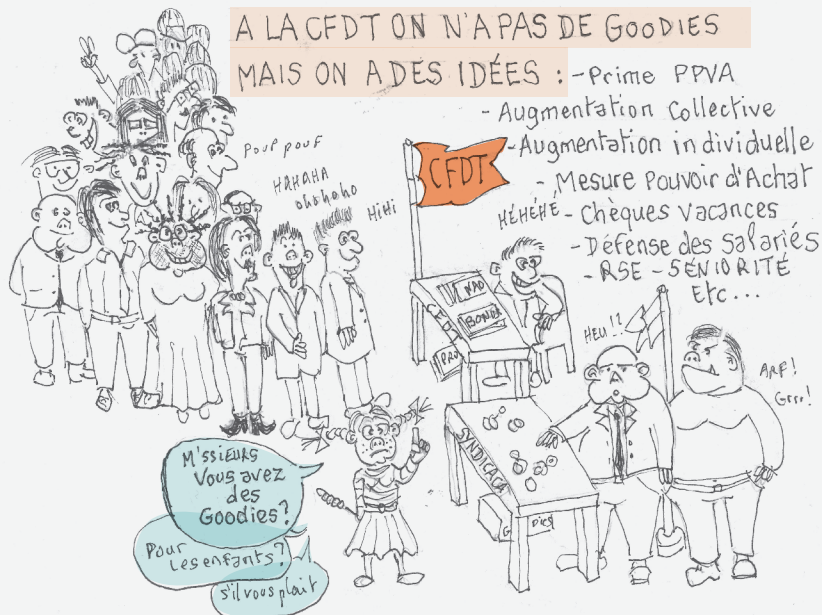 A LA CFDT ON N'A PAS DE GOODIES
MAIS ON A DES IDÉES : - Prime PPVA
- Augmentation Collective
- Augmentation individuelle
- Mesure Pouvoir d'Achat
- Chèques vacances
- Défense des Salariés
- RSE - SÉNIORITÉ
Etc...
CFDT
Pouf pouf
HAHAHA
ohohoho
HiHi
HÉHÉHÉ
NAO
BONUS
PRO
CFDT
HEU!?
ARF!
Grrr!
SYNDICACA
GOODIES
M'ssieurs
Vous avez
des
Goodies?
Pour
Les enfants?
s'il vous plait